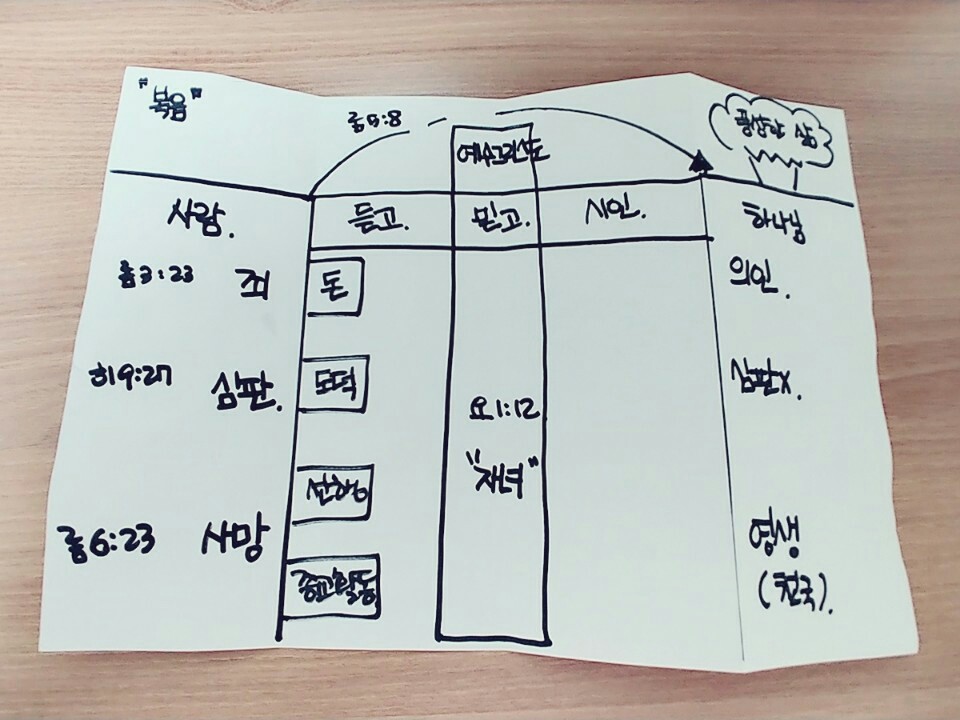 "복음"
롬5:8
예수그리스도
풍성한 삶
사람.
듣고.
믿고.
시인.
하나님
롬3:23 죄
돈
의인.
히9:27 심판.
도덕
심판x.
요1:12
"자녀"
선행
롬6:23 사망
종교활동
영생
(천국).